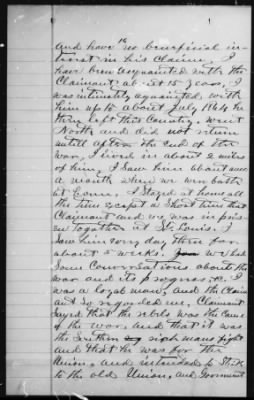 and have no beneficial in-
terest in his Claim, I
have been acquainted with the
Claimant abt 15 years, I
was intimately aquainted with
him up to about July 1864 he
then left this Country, went
North and did not return
untill after the end of the
War, I lived in about 2 miles
of him, I saw him about once
a month when we wer both
at home. I staged at home all
the time except a Short time that
Claimant and me was in pris-
on together at St. Louis. I
saw him every day there for
about 5 weeks. We had
Some Conversations about the
war and its progress, &c. I
was a loyal man, and the Claim
ant so regarded me, Claimant
Sayed that the rebels was the Cause
of the war, and that it was
the Southern rich mans fight
and that he was for the
Union, and intended to Stick
to the old Union, and Government